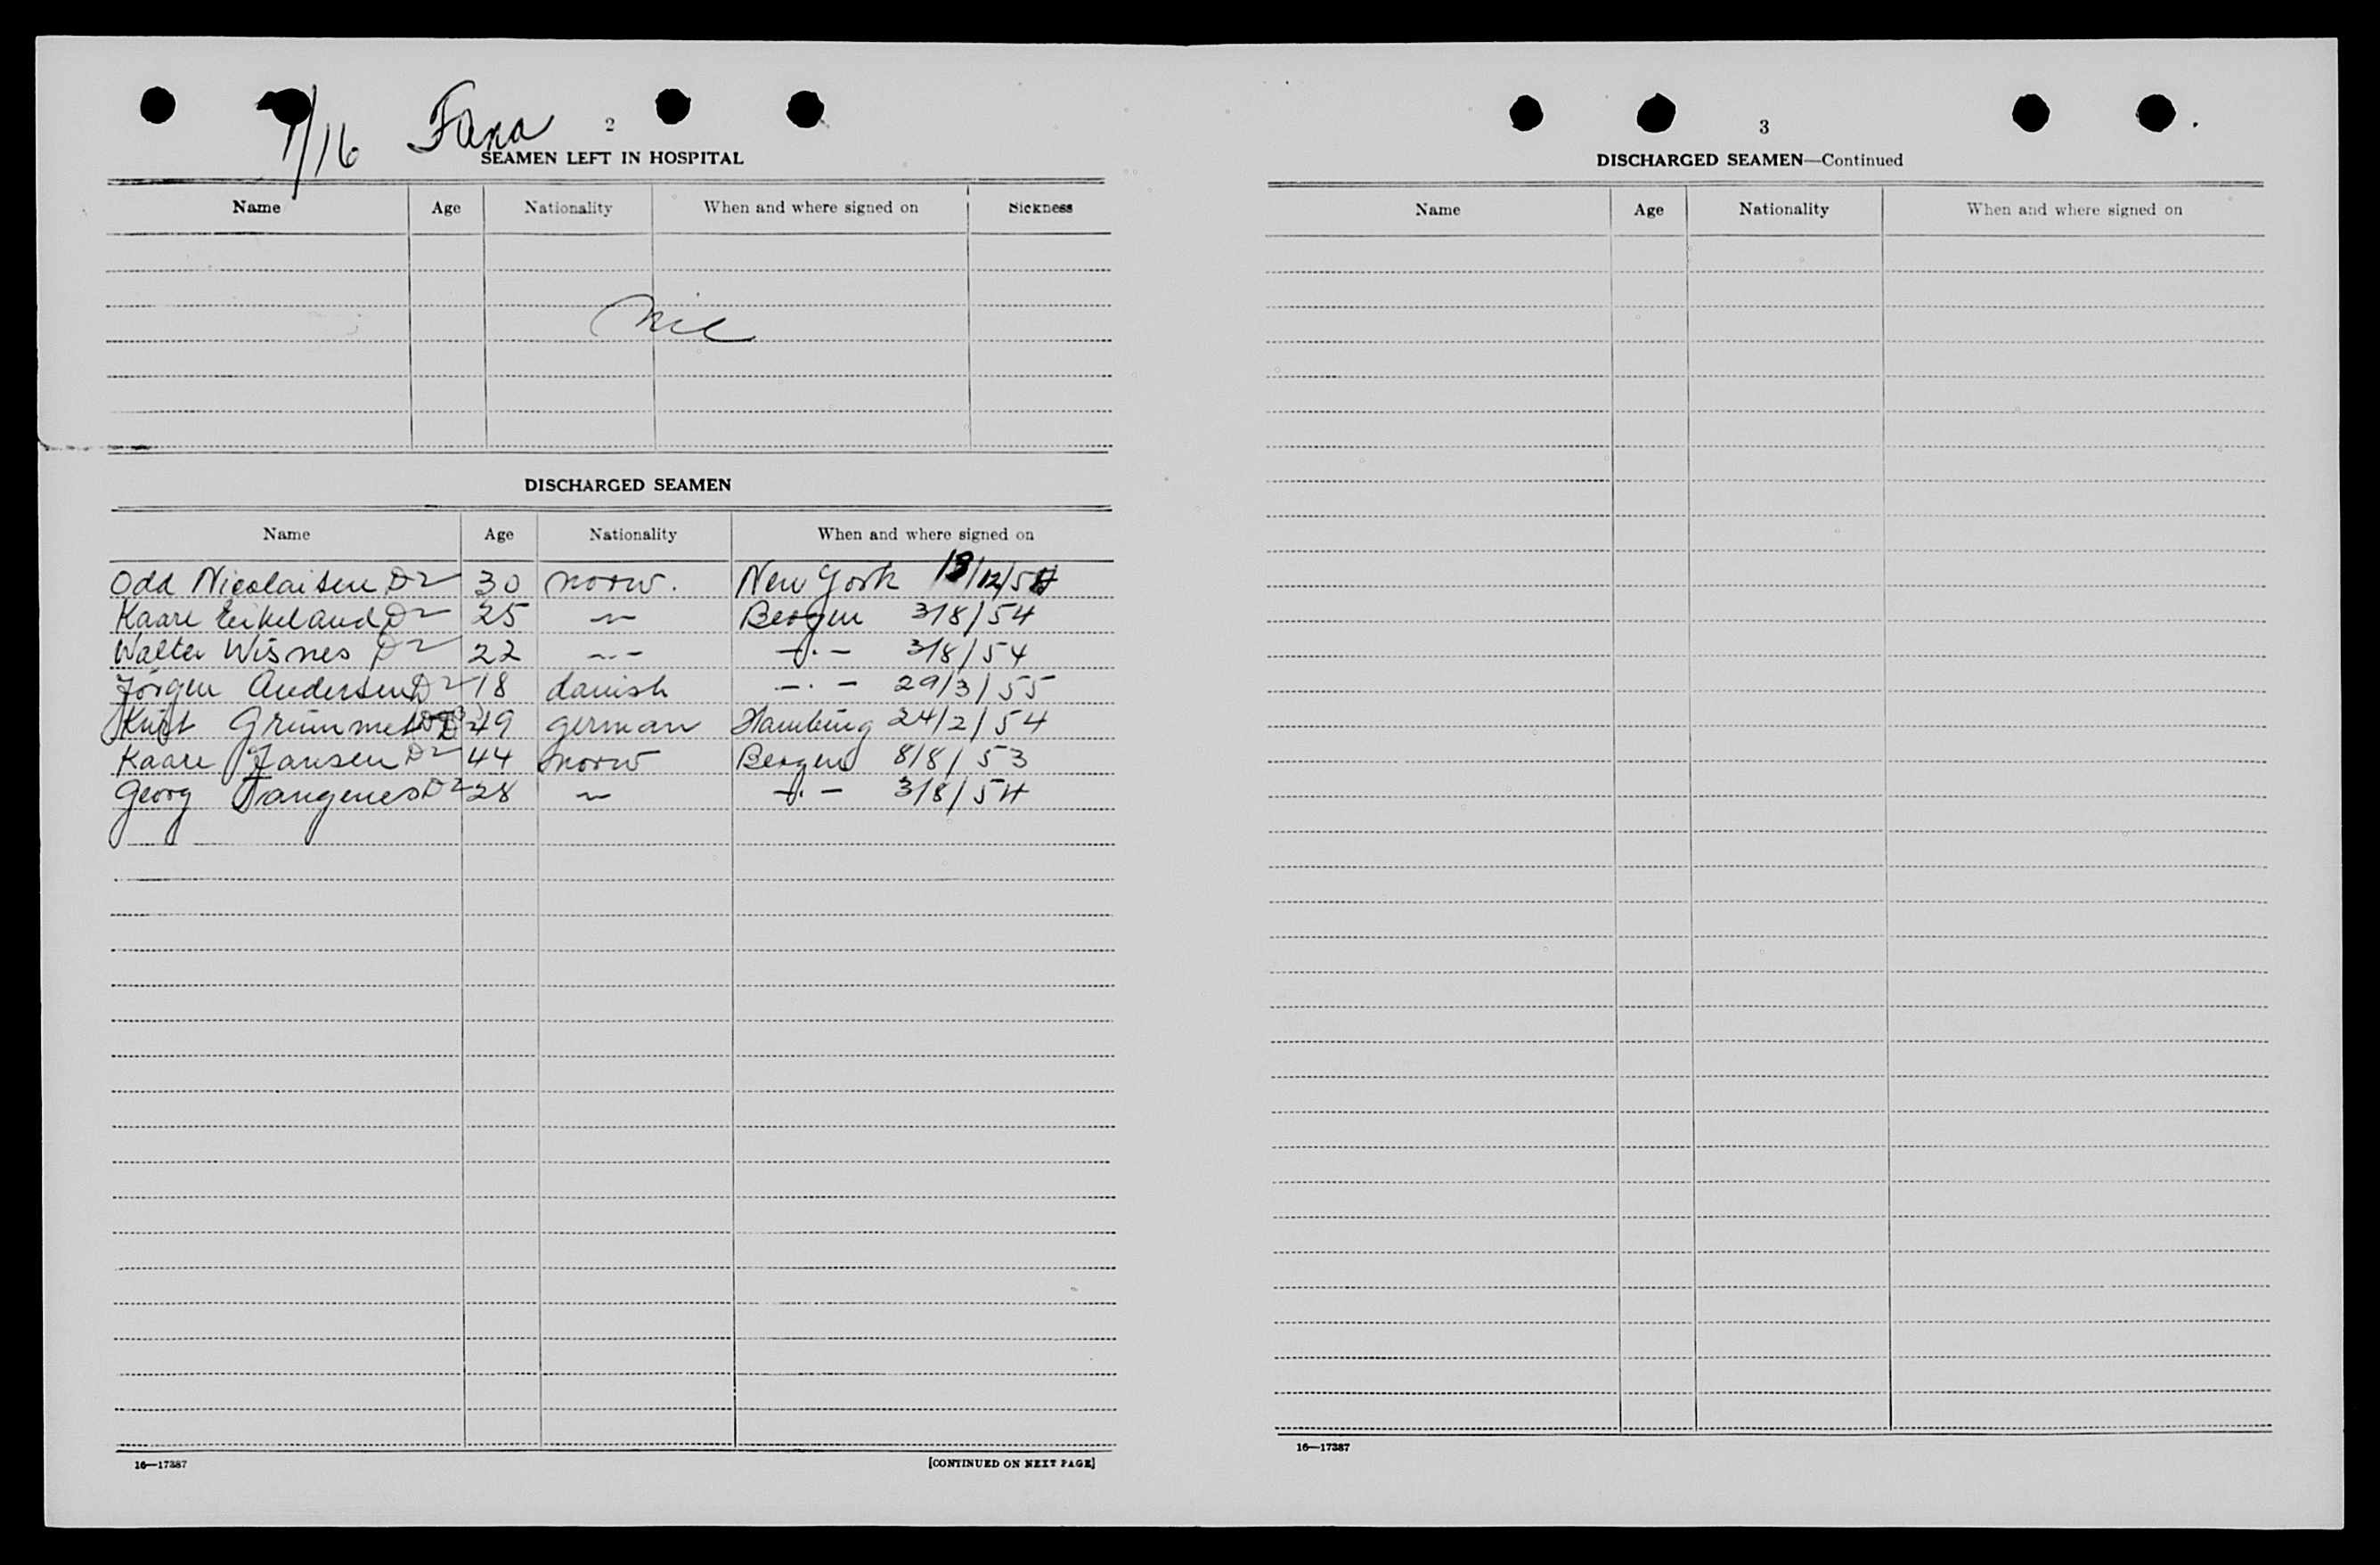 7/16 Fana
2
SEAMEN LEFT IN HOSPITAL
Name Age Nationality When and where signed on Sickness
Nil
DISCHARGED SEAMEN
Name Age Nationality When and where signed on
Odd Nicolaisen D2 30 norw. New York 18/12/54
Kaare Eikeland D2 25 〃 Bergen 3/8/54
Walter Wisnes D2 22 -〃- -〃- 3/8/54
Jörgen Andersen D2 18 danish -〃- 29/3/55
Kurt 49 german Hamburg 24/2/54
Kaare Jansen D2 44 norw Bergen 8/8/53
Georg Tangenes D2 28 〃 -〃- 3/8/54
16—17387 [CONTINUED ON NEXT PAGE]
3
DISCHARGED SEAMEN—Continued
Name Age Nationality When and where signed on
16—17387